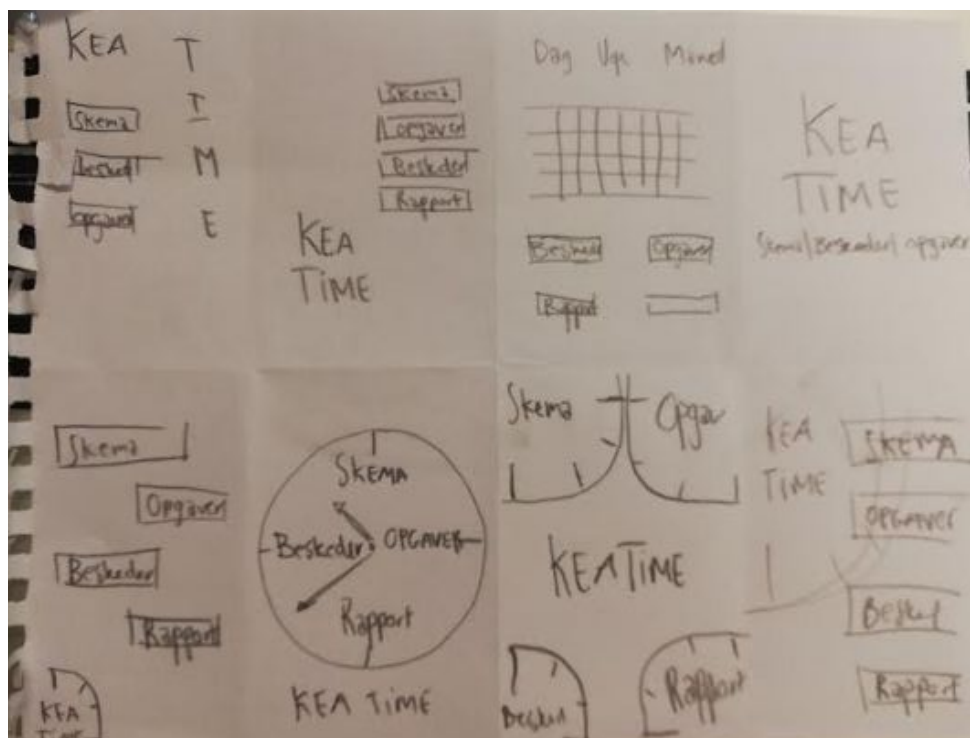 KEA
T
I
M
E
Skema
Besked
opgaver
Skema
opgaver
Beskeder
Rapport
KEA
TIME
Dag Uge Måned
Beskeder
Opgaver
Rapport
KEA
TIME
Skema/Beskeder/opgaver
Skema
Opgaver
Beskeder
Rapport
KEA
TIME
SKEMA
Beskeder
OPGAVER
Rapport
KEA TIME
Skema
Opgav
KEATIME
Besked
Rapport
KEA
TIME
SKEMA
OPGAVER
Besked
Rapport